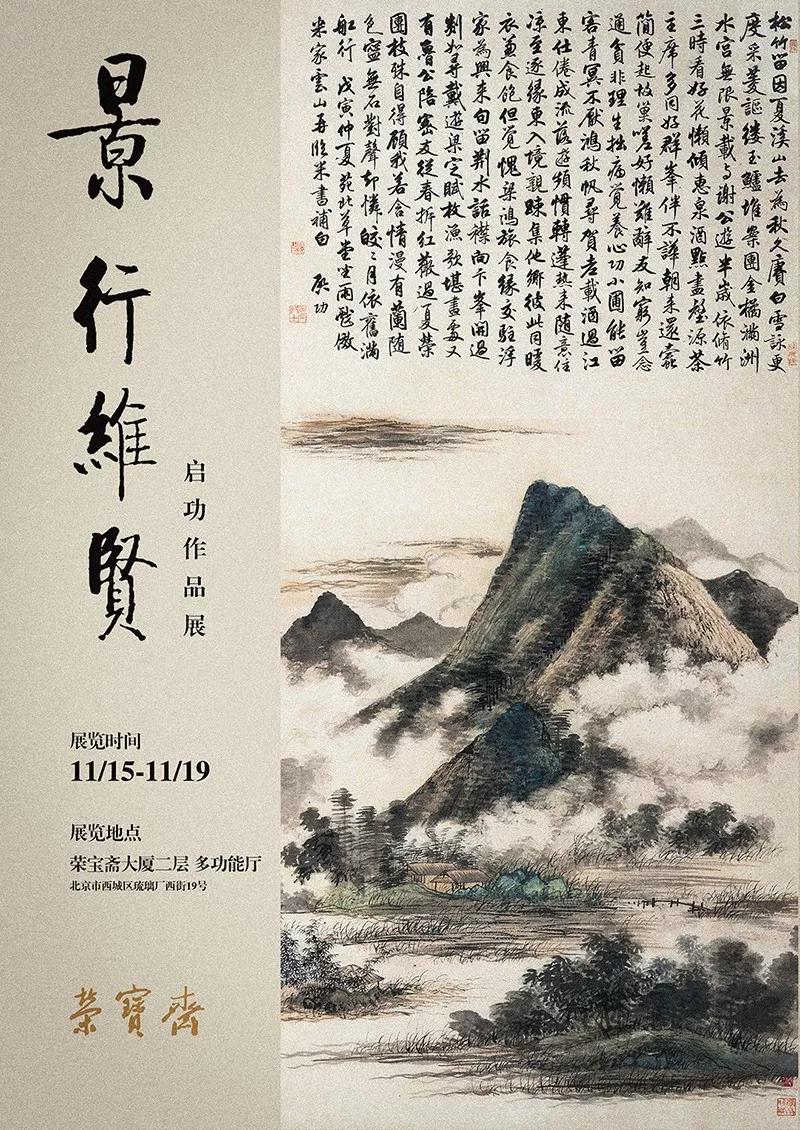 景行維賢
启功作品展
展览时间
11/15-11/19
展览地点
荣宝斋大厦二层 多功能厅
北京市西城区琉璃厂西街19号
榮寶齋
松竹留因夏溪山去為秋久賡白雪詠更
度采菱謳縷玉鱸堆案團金橘滿洲
水宮無限景載与謝公遊半歲依脩竹
三時看好花懶傾惠泉酒點盡壑源茶
主席多同好群峯伴不譁朝来還蠹
簡便起故巢嗟好懶難辭友知窮豈念
通貧非理生拙病覺養心功小圃能留
客青冥不厭鴻秋帆尋賀老載酒過江
東仕倦成流落遊頻慣轉蓬熱来随意住
凉至逐緣東入境親踈集他鄉彼此同暖
衣兼食飽但覺愧梁鴻旅食緣交駐浮
家為興来句留荆水話襟向卞峯開過
剡如尋戴遊梁定賦枚漁歌堪畫處又
有魯公陪密友從春拆紅薇過夏榮
團枝殊自得顧我若含情漫有蘭随
色寧無石對聲却憐皎〻月依舊滿
船行 戊寅仲夏苑北草堂坐雨戲倣
米家雲山再臨米書補白 启功